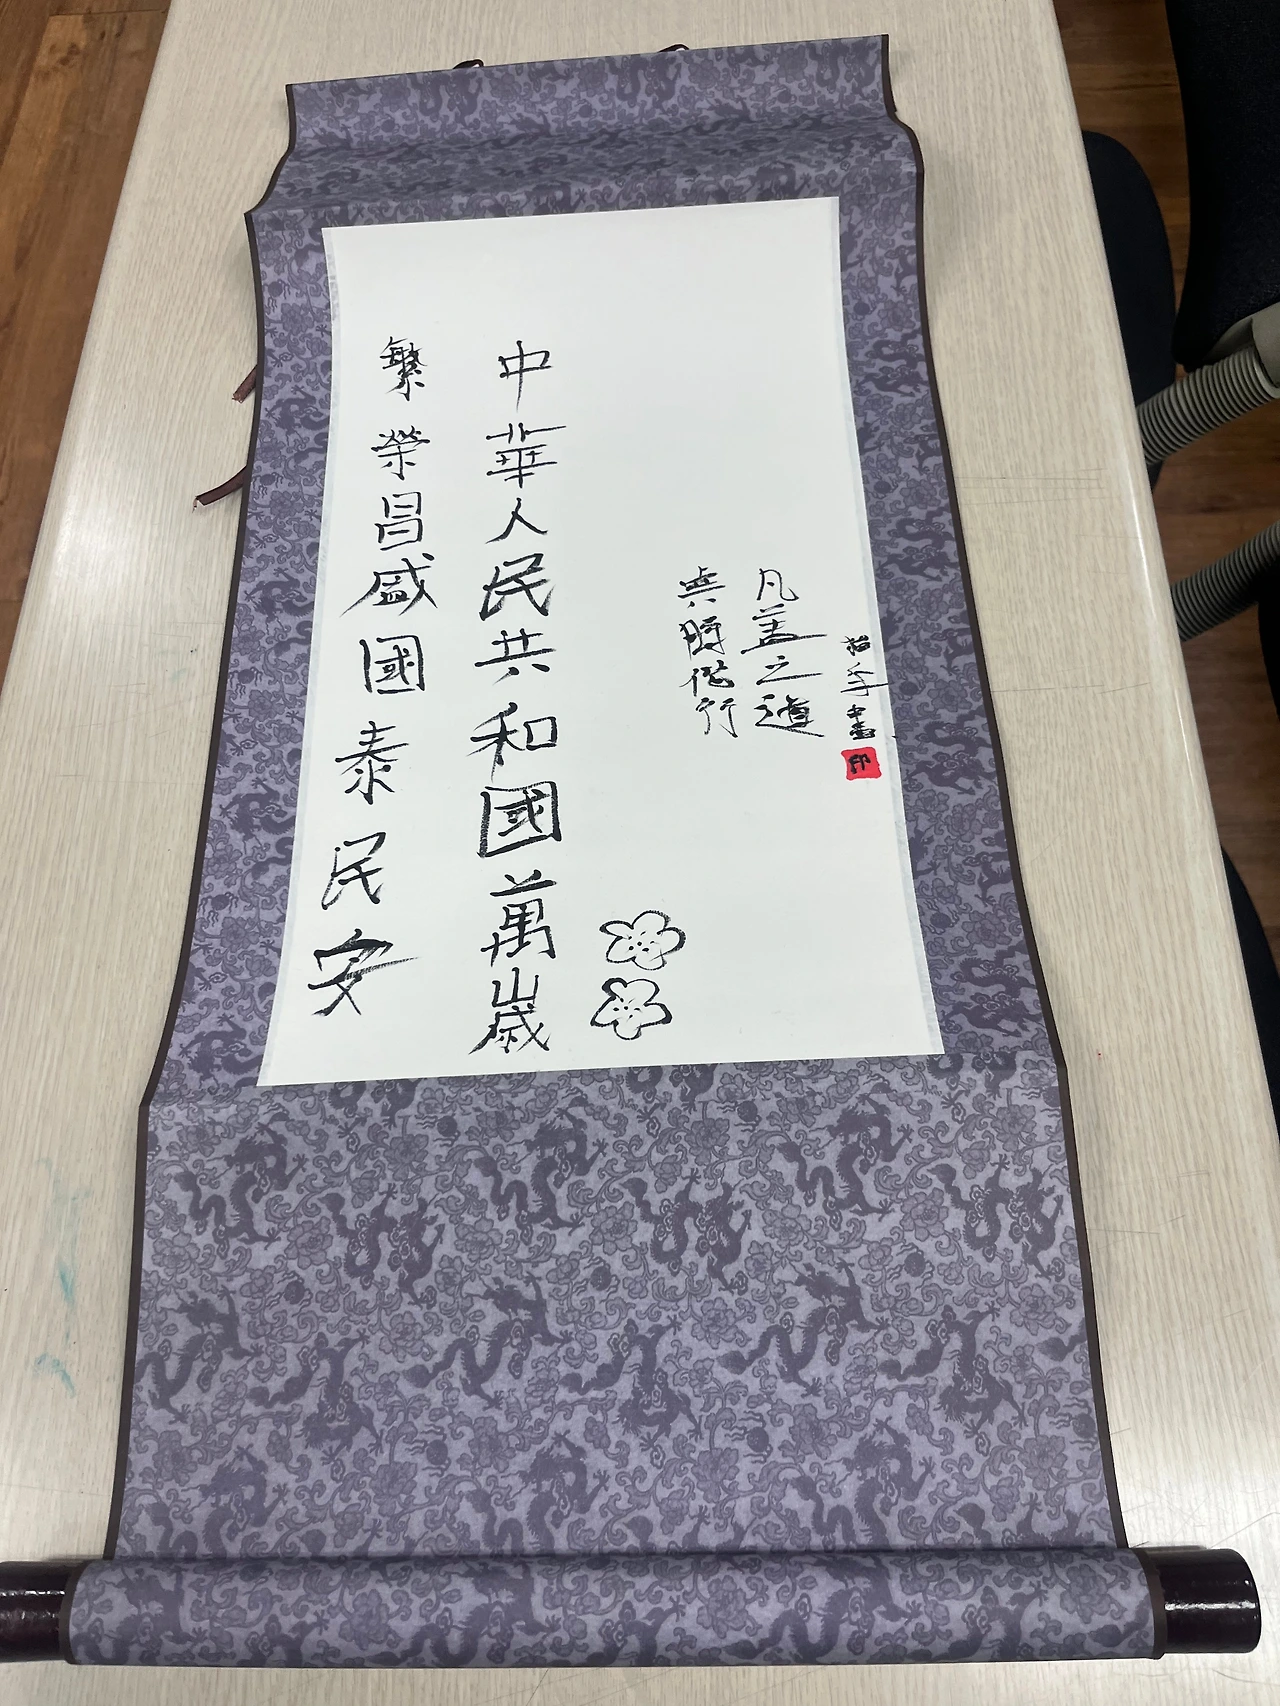 印
凡盖之道
與時偕行
中華人民共和國萬歲
繁榮昌盛國泰民安